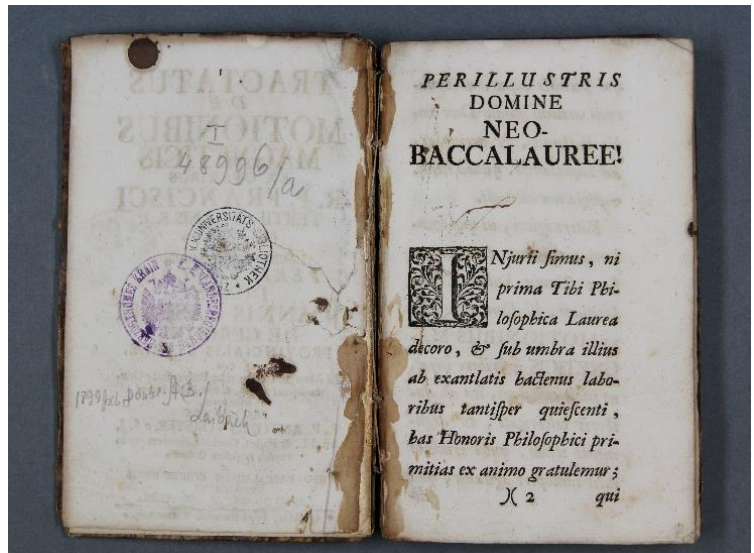 TRACTATUS
DE
MOTIONIBUS
MAGNETIS
I
48996/a
UNIVERSITÄTS
BIBLIOTHEK
KRAIN
Laibach
PERILLUSTRIS
DOMINE
NEO-
BACCALAUREE!
INjurii ſimus, ni
prima Tibi Phi-
loſophica Laurea
decoro, & ſub umbra illius
ab exantlatis hactenus labo-
ribus tantiſper quieſcenti,
has Honoris Philoſophici pri-
mitias ex animo gratulemur;
)( 2 qui